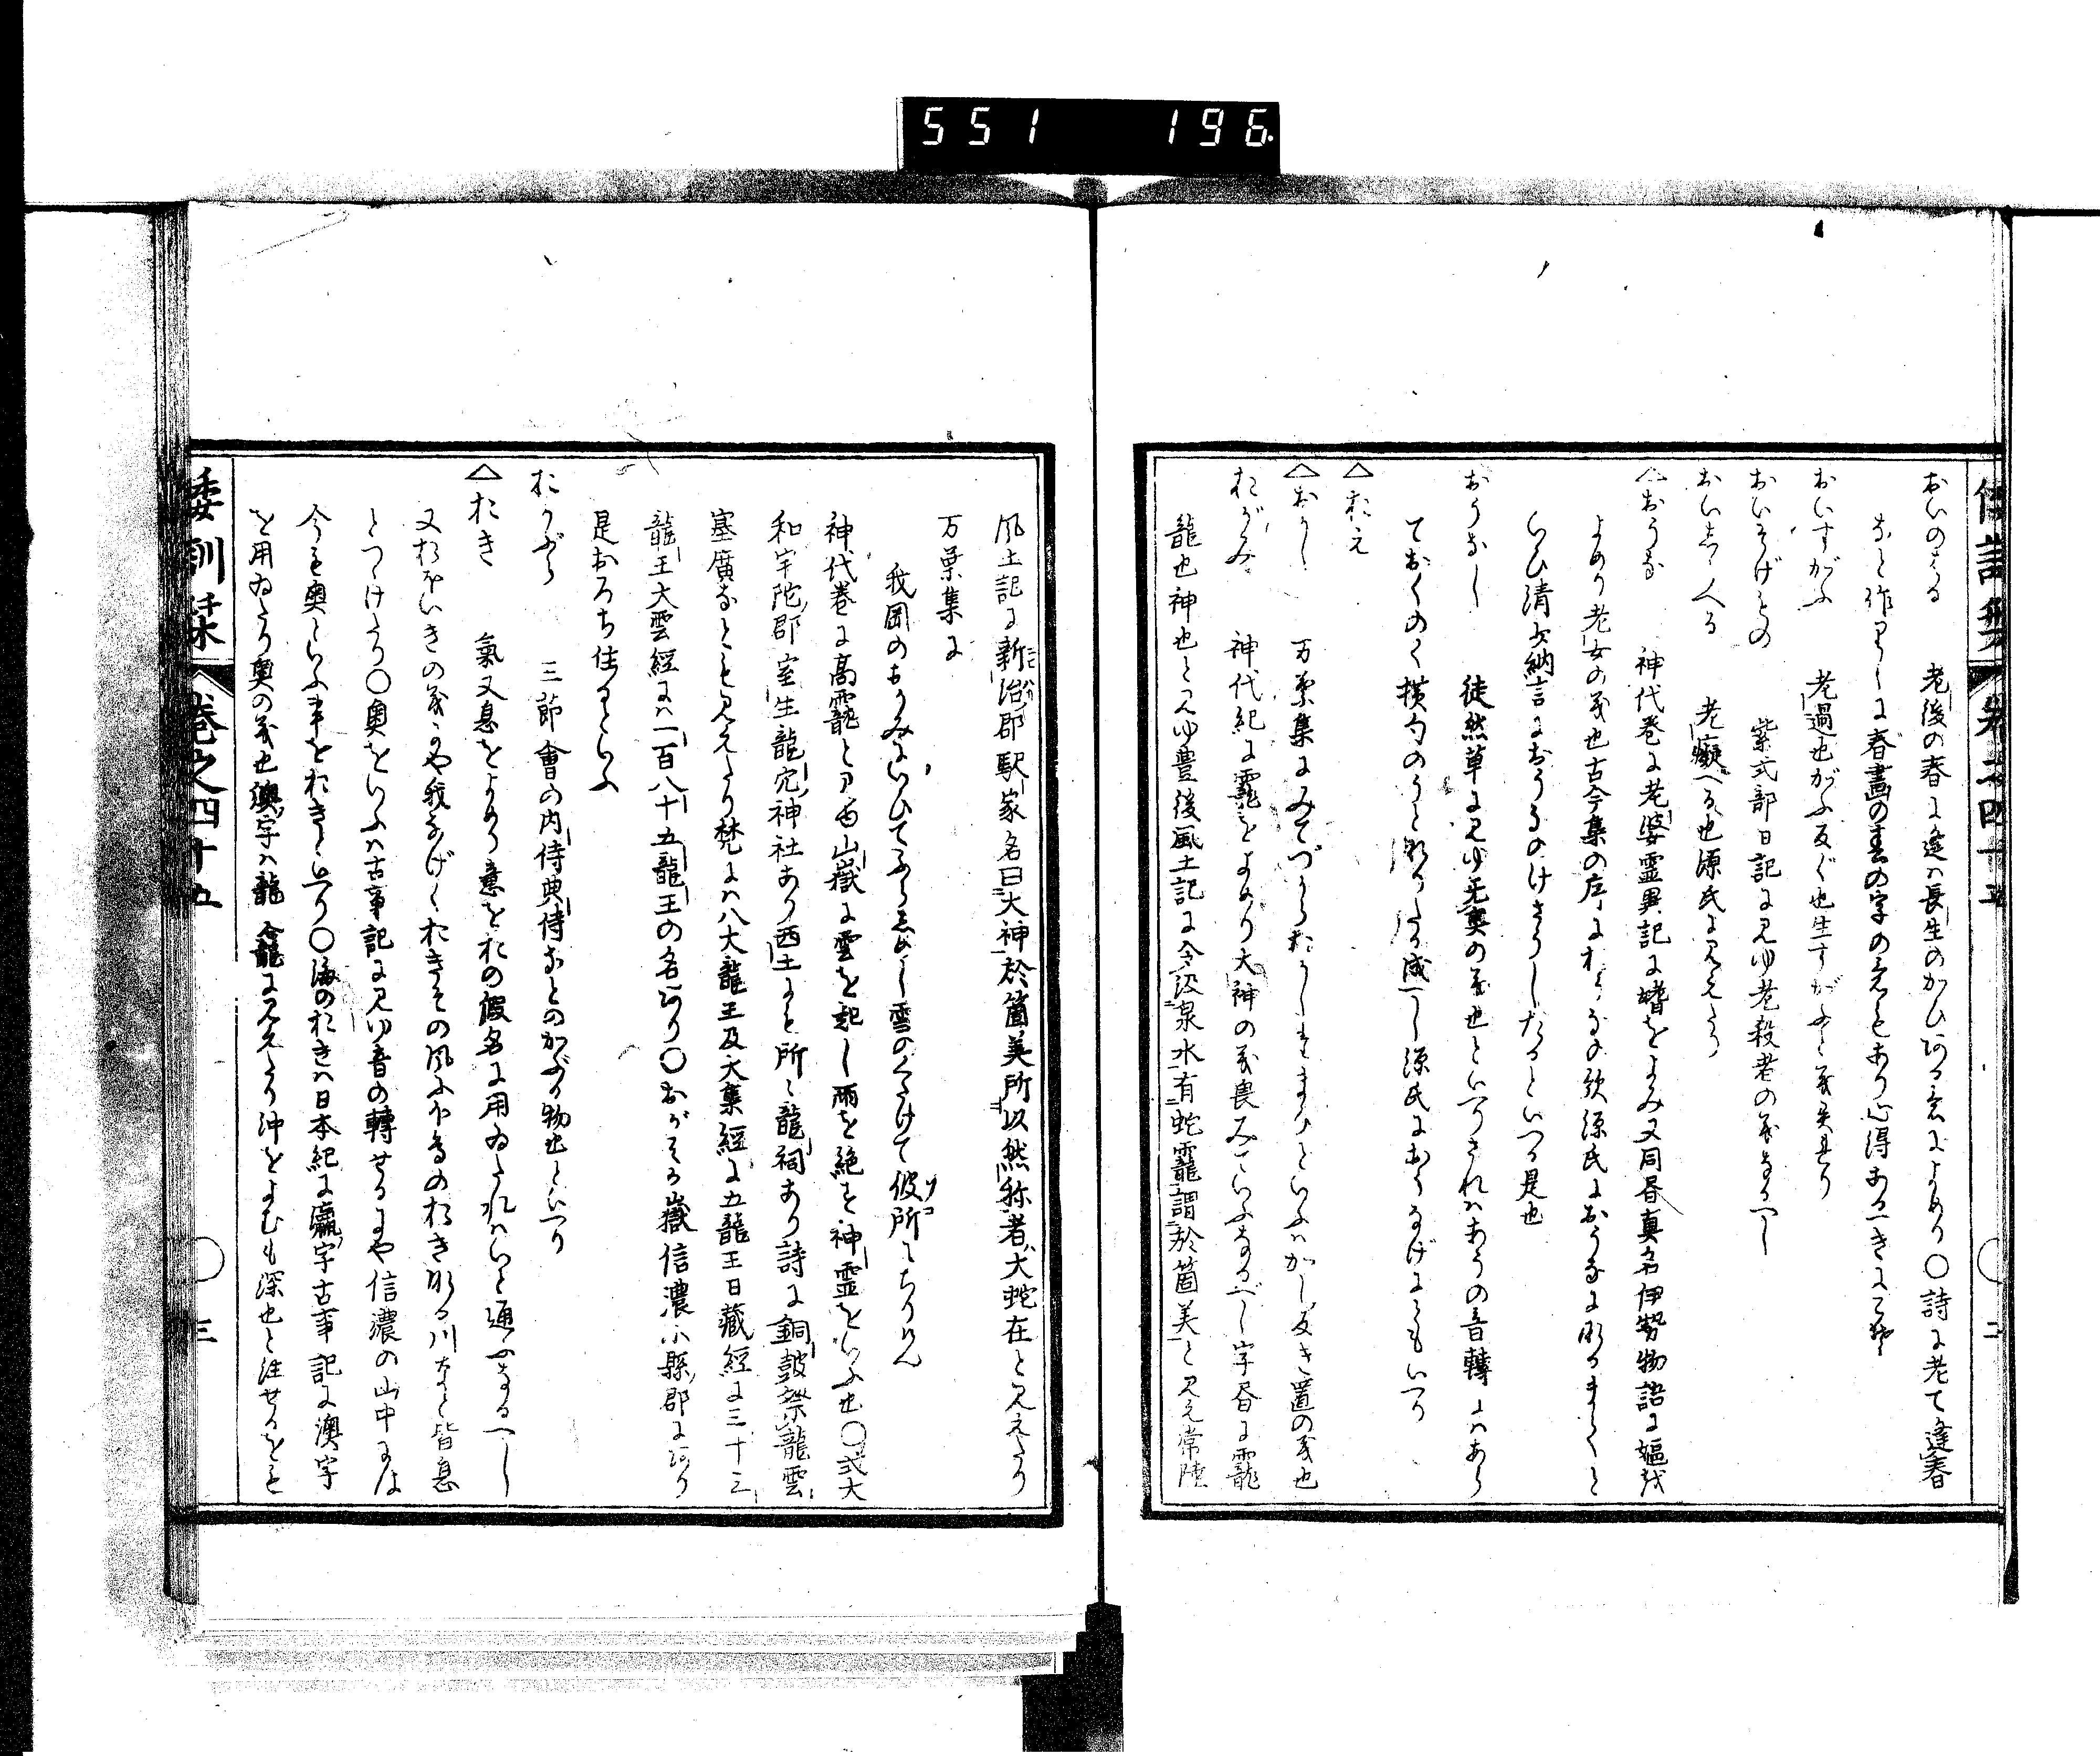 551 196
おいのはる 老後の春に逢ハ長生のかひある意によめり〇詩に老て逢春
なと作りしに春畫の春の字の意もあり心得あるへきにこそ
おいすがふ 老過也がふ反ぐ也生すがふとハ義異なり
おいそげもの 紫式部日記に見ゆ老殺者の義なるへし
おいしへ人る 老癡へる也源氏に見えたり
△おうな 神代巻に老婆霊異記に嫗をよみ又同昏真名伊勢物語に嫗或
よめり老女の義也古今集の序におうなの歌源氏におうなに成るまてと
いひ清少納言におうなのけさうしたるといへる是也
おうなし 徒然草に見ゆ无奥の義也といへりされハあうの音轉にハあら
ておくのく横勺のうと成りたる成へし源氏におうなげにともいへり
△おえ
△おかし 万葉集にみてづからおかしたまひといふハかしづき置の義也
おがみ 神代紀に龗をよめり大神の義畏みていふなるべし字昏に龗
龍也神也と見ゆ豊後風土記に令汲泉水有蛇龗謂於箇美と見え常陸
倭訓栞 巻之四十五 〇二
風土記に新治郡駅家名曰大神於箇美所以然称者大蛇在と見えたり
万葉集に
我岡のおかみにいひてふらしめし雪のくたけて彼所にちりけん
神代巻に高龗と見ゆ山嶽に雲を起し雨を絶を神霊をいふ也〇式大
和宇陀郡室生龍穴神社あり西土にも所々龍祠あり詩に銅皷祭龍雲
塞廣なとも見えたり梵にハ八大龍王及大集経に五龍王日藏経に三十三
龍王大雲經にハ一百八十五龍王の名あり〇おがみ嶽信濃小縣郡にあり
是おろち住りといふ
おかぶり 三節會の内侍典侍なとのかぶり物也といへり
△おき 氣又息をよめり意をおの假名に用ゐたれハいと通ふなるへし
又おほいきの義にや我なげくおきその風にほ鳥のおき成る川なと皆息
とつゝけたり〇奥をいふハ古事記に見ゆ音の轉せるにや信濃の山中にハ
今も奥といふ事をおきといへり〇海のおきハ日本紀に瀛字古事記に澳字
を用ゐたり奥の義也澳字ハ龍龕に見えたり沖をよむも深也と注せるをも
倭訓栞 巻之四十五 〇三